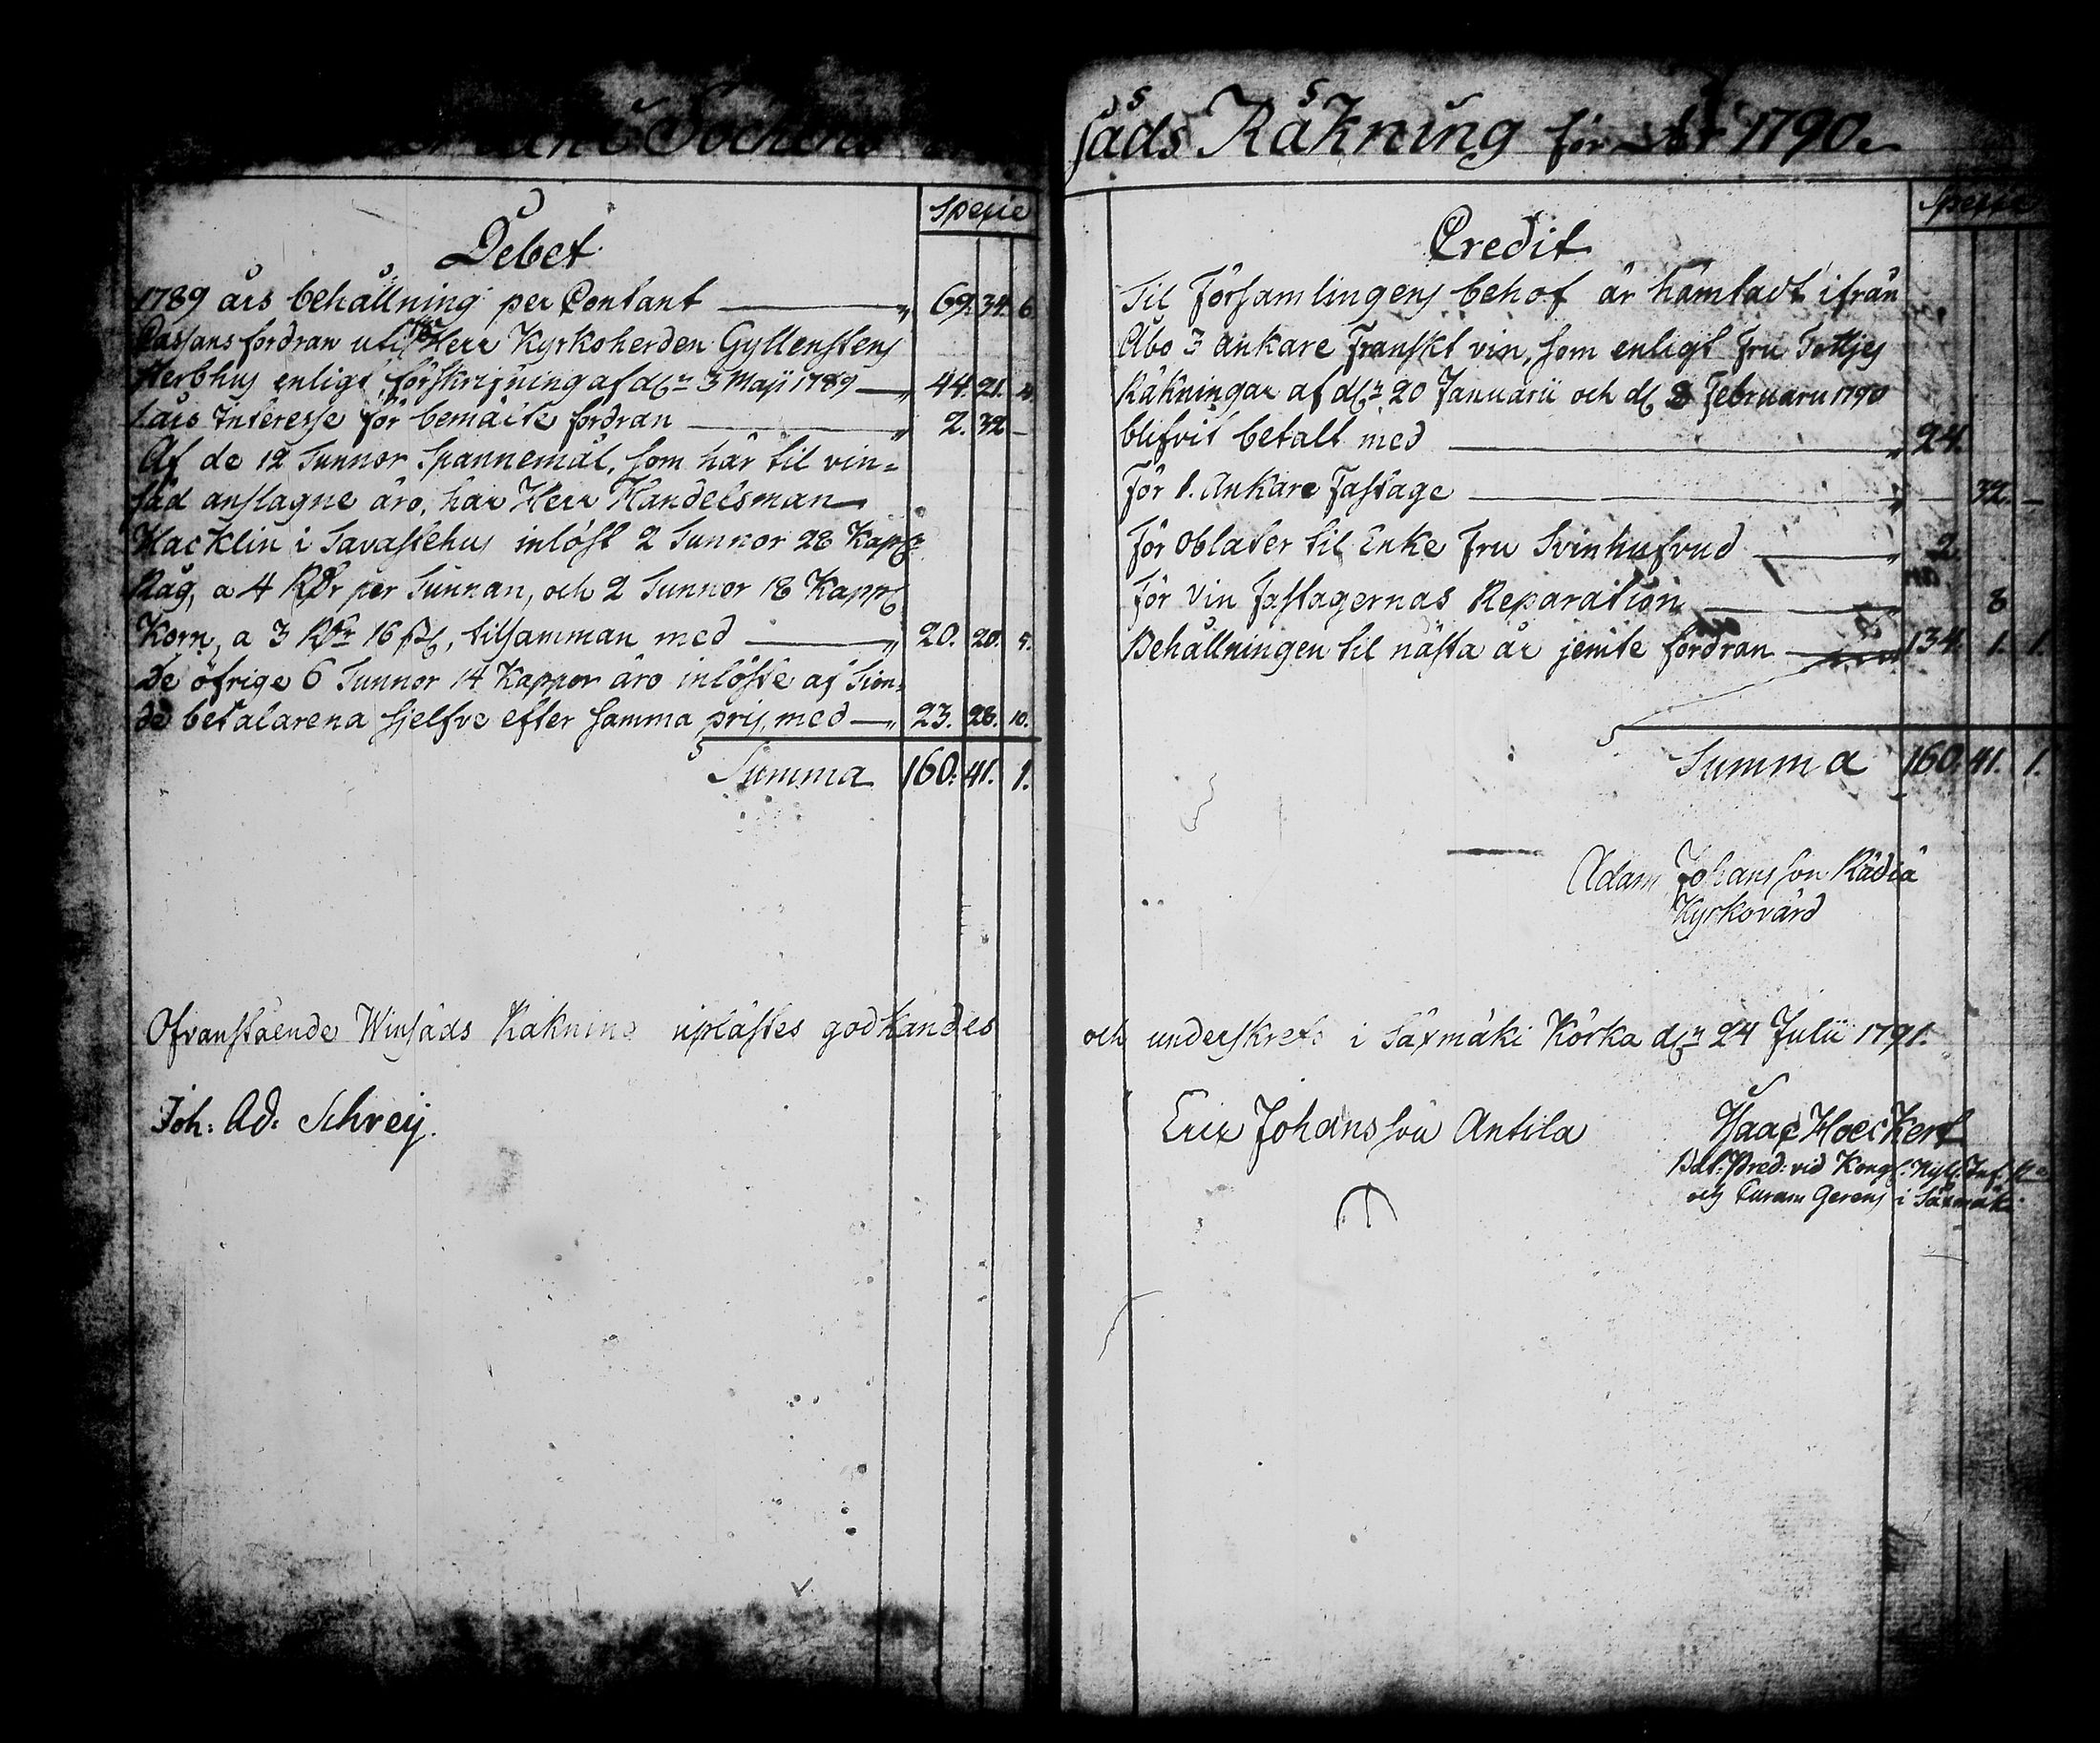 Sockens
Debet
Specie
1789 års behållning per Contant 69. 34. 6.
Cassans fordran uti Herr Kyrkoherden Gyllenstens
sterbhus enligt förskrifning af d. 3 Maji 1789 44. 21. 4.
1 års Interesse för bemälte fordran 2. 32 –
Af de 12 Tunnor Spannemål, som här til vin-
säd anslagne äro, har Herr Handelsman
Hacklin i Tavastehus inlöst 2 Tunnor 28 Kappr
Råg, a 4 RDr per Tunnan, och 2 Tunnor 18 Kappr
Korn, a 3 RDr 16 ß, tilsamman med 20. 20. 5.
De öfrige 6 Tunnor 14 Kappor äro inlöste af Tion-
de betalarena sjelfve efter samma pris, med 23. 28. 10.
Summa 160. 41. 1.
Ofvanstående Winsäds Räkning uplästes godkändes
Joh: Ad: Schreij.
säds Räkning för år 1790.
Specie
Credit
Til Församlingens behof är hämtadt ifrån
Åbo 3 ankare Franskt vin, som enligt Fru Tottjes
Räkningar af d. 20 Januarii och d. 8 Februarii 1790
blifvit betalt med 24.
För 1. Ankare Fastage – 32. –
För Oblater til Enke Fru Svinhufvud 2
För Vin Fastagernas Reparation 8
Behållningen til nästa år jemte fordran 134. 1. 1.
Summa 160. 41. 1.
Adam Johansson Rädiä
Kyrkovärd
och underskrefs i Säxmäki Körka d. 24 Julii 1791.
Eric Johansson Antila
Isaac Hoeckert
Bat: Pred: vid Kongl. Nyl. Inf.
och Curam Gerens i Säxmäki